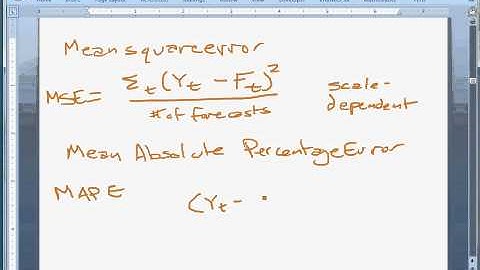 Mean square error
MSE = Σt(Yt - Ft)²
# of forecasts
scale-
dependent
Mean Absolute Percentage Error
MAPE (Yt -